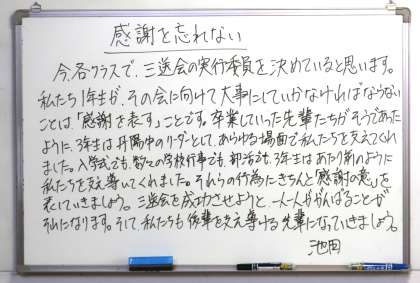 感謝を忘れない
今、各クラスで、三送会の実行委員を決めていると思います。
私たち1年生が、その会に向けて大事にしていかなければならない
ことは「感謝を表す」ことです。卒業していった先輩たちがそうであった
ように、3年生は丹陽中のリーダーとして、あらゆる場面で私たちを支えてくれ
ました。入学式でも、数々の学校行事でも、部活でも、3年生はあたり前のように
私たちを支え導いてくれました。それらの行為にきちんと「感謝の意」を
表していきましょう。三送会を成功させようと、一人一人ががんばることが
それになります。そして、私たちも後輩を支え導ける先輩になっていきましょう。
池田